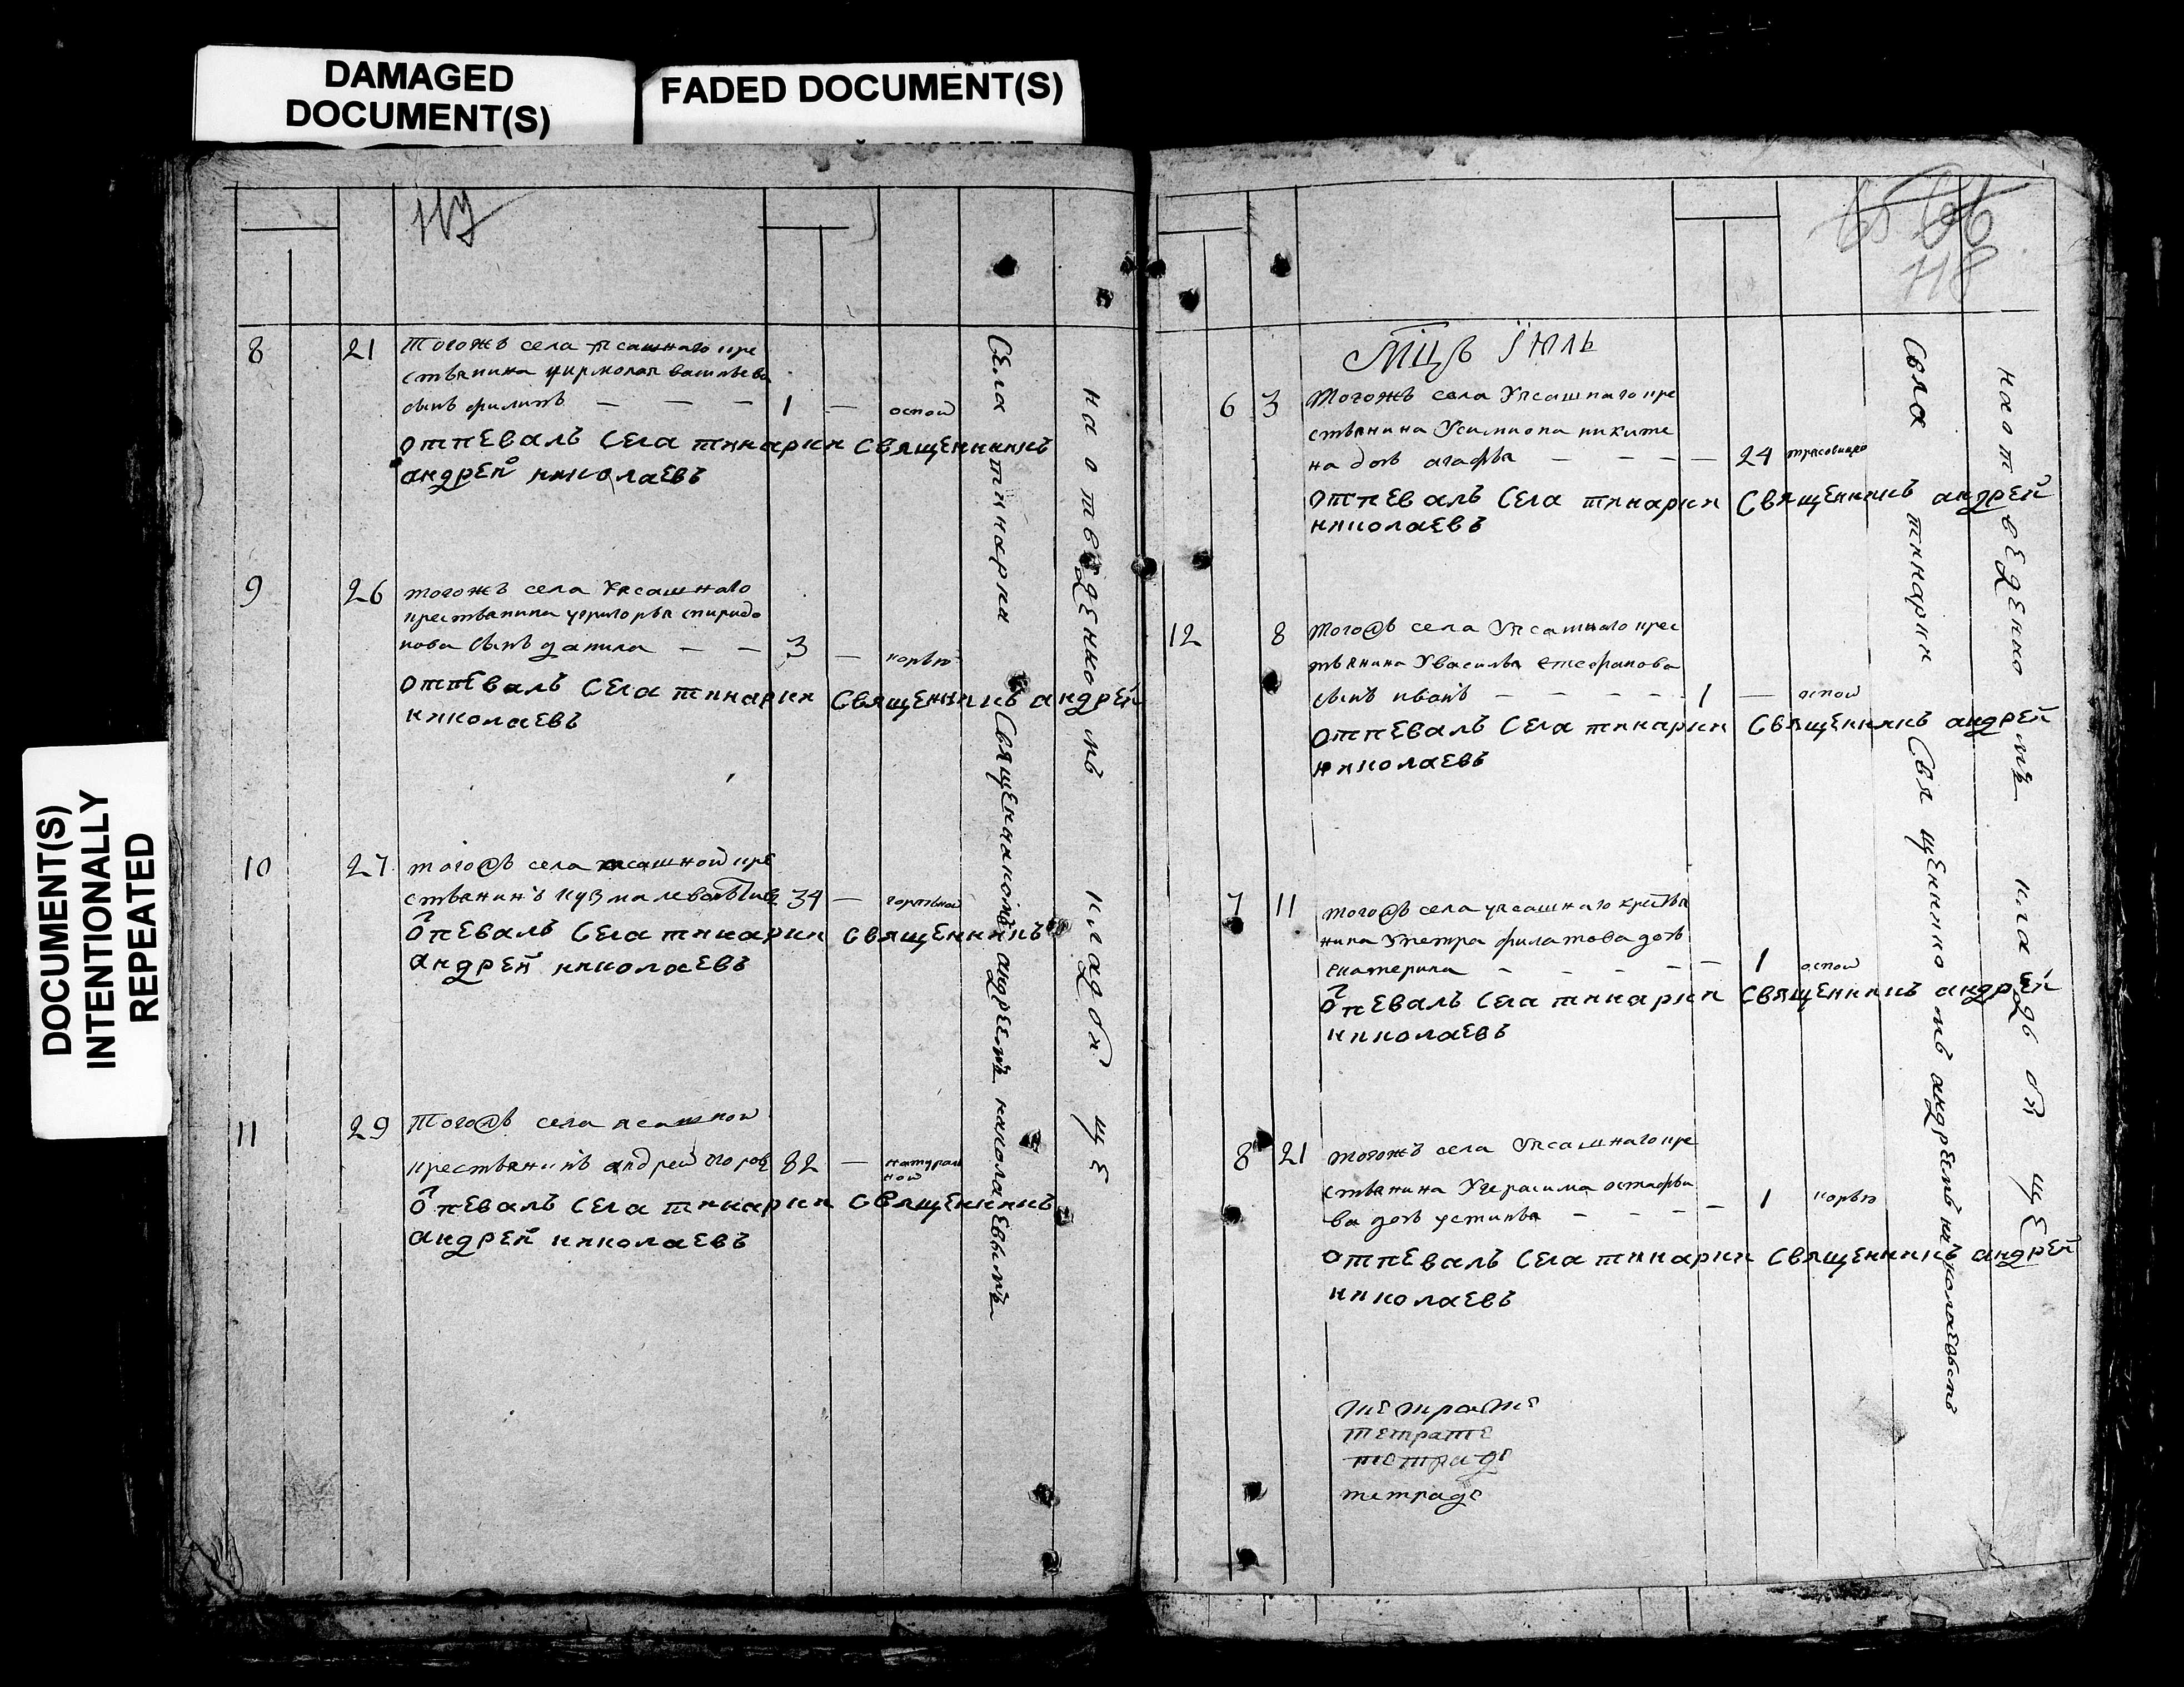 DAMAGED
DOCUMENT(S)
FADED DOCUMENT(S)
DOCUMENT(S)
INTENTIONALLY
REPEATED
117
8 21 тогожъ села ясашнаго кре
стьянина уирмолая васильева
сынъ филипъ — — — 1 — оспою
отпевалъ села тинарки священникъ
андрей николаевъ
9 26 тогожъ села уясашнаго
крестьянина угригорья спиридо
нова сынъ данила — — 3 — корью
отпевалъ села тинарки священникъ андрей
николаевъ
10 27 тогожъ села ясашной кре
стьянинъ кузма 34 —
опевалъ села тинарки священникъ
андрей николаевъ
11 29 тогожъ села ясашной
крестьянинъ андрей 82 — натураль
ной
опевалъ села тинарки священникъ
андрей николаевъ
села тинарки священникомъ андреемъ николаевымъ
на отведенномъ кладбище
118
мцъ июль
6 3 тогожъ села уясашнаго кре
стьянина усимиона никити
на дочь агафья — — — — 24
отпевалъ села тинарки священникъ андрей
николаевъ
12 8 тогожъ села уясашнаго крес
тьянина увасилья стефанова
сынъ иванъ — — — — 1 — оспою
отпевалъ села тинарки священникъ андрей
николаевъ
7 11 тогожъ села уясашнаго крестья
нина упетра филатова дочь
екатерина — — — — — 1 оспою
опевалъ села тинарки священникъ андрей
николаевъ
8 21 тогожъ села уясашнаго кре
стьянина угерасима остафьи
ва дочь устинья — — — — 1 корью
отпевалъ села тинарки священникъ андрей
николаевъ
тетрате
тетрате
тетраде
тетраде
села тинарки священникомъ андреемъ николаевымъ
на отведенномъ кладбище